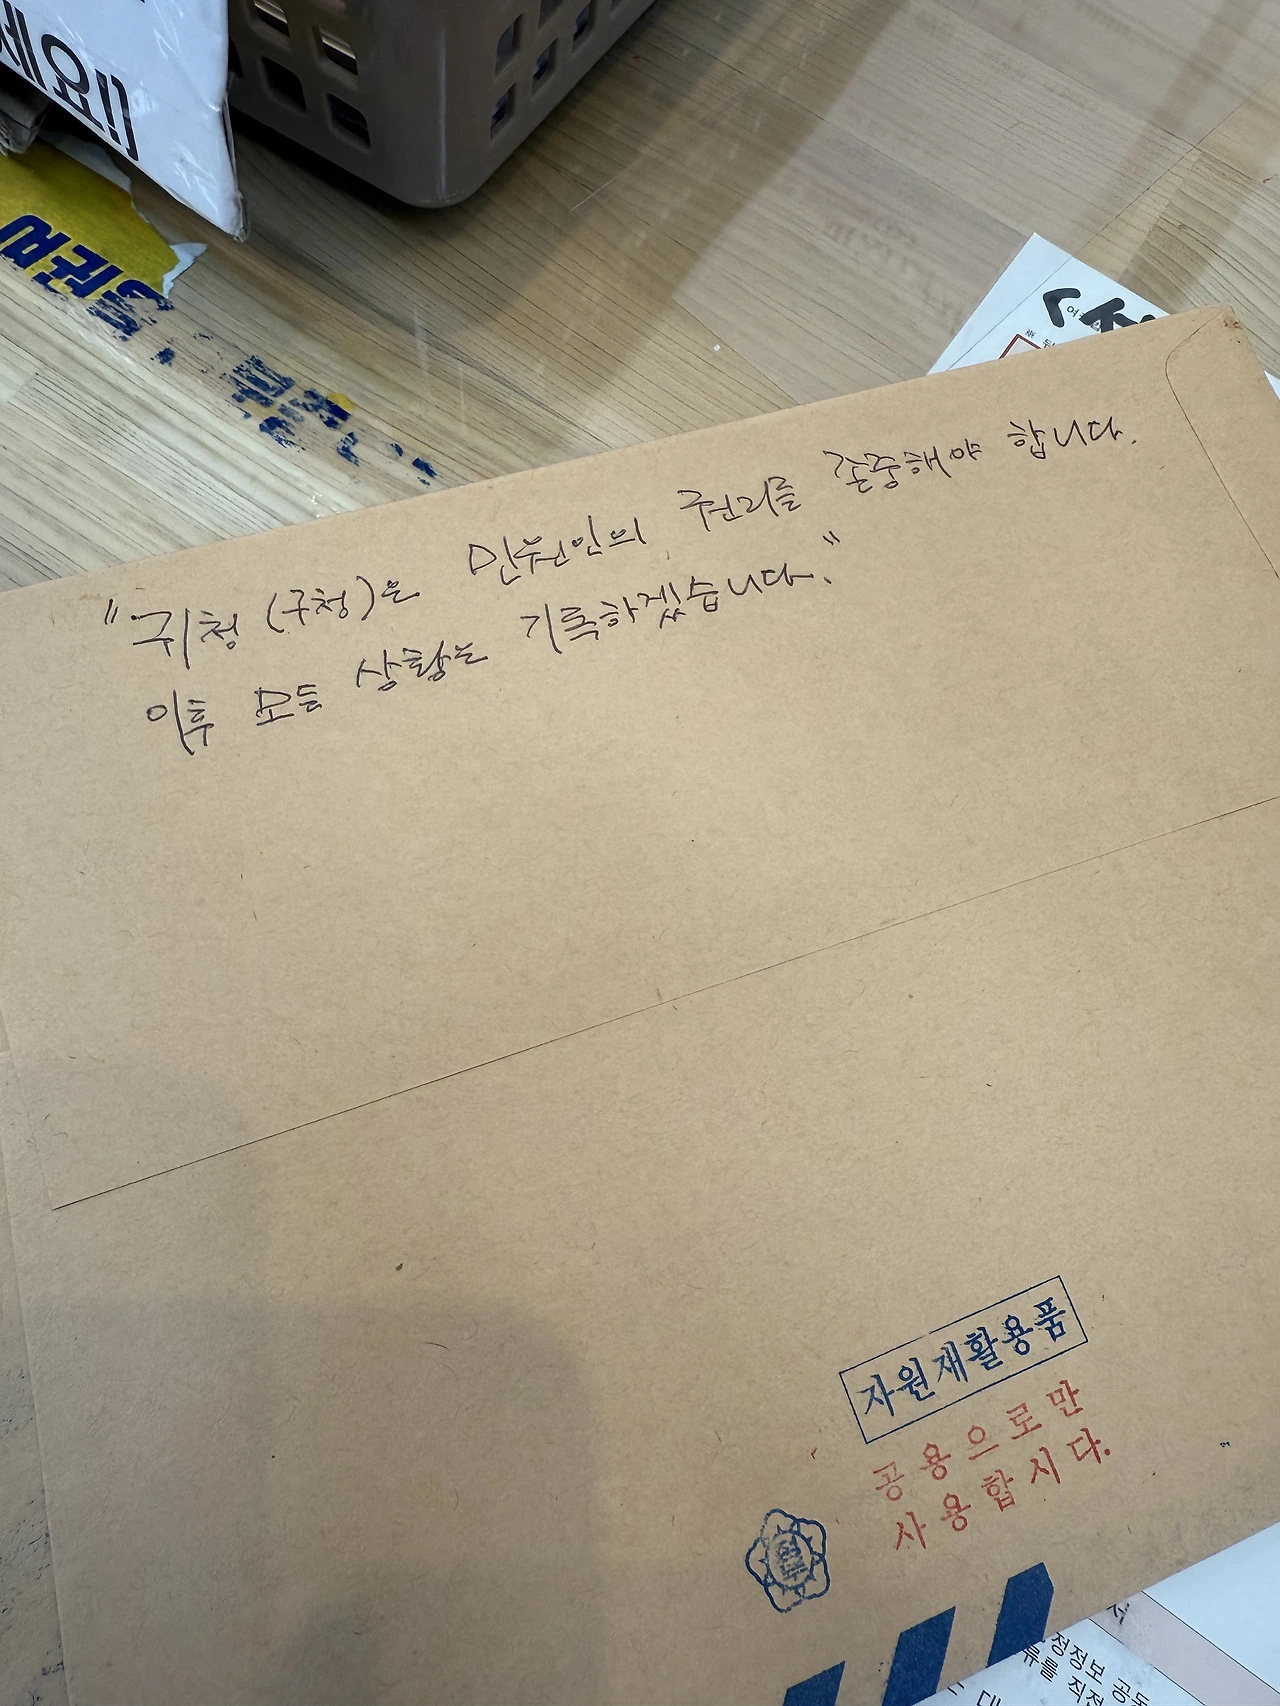 세요!]
"귀청 (구청)은 민원인의 권리를 존중해야 합니다.
이후 모든 상황은 기록하겠습니다."
자원재활용품
공용으로만
사용합시다.
서
정정보 공동
류를 직접